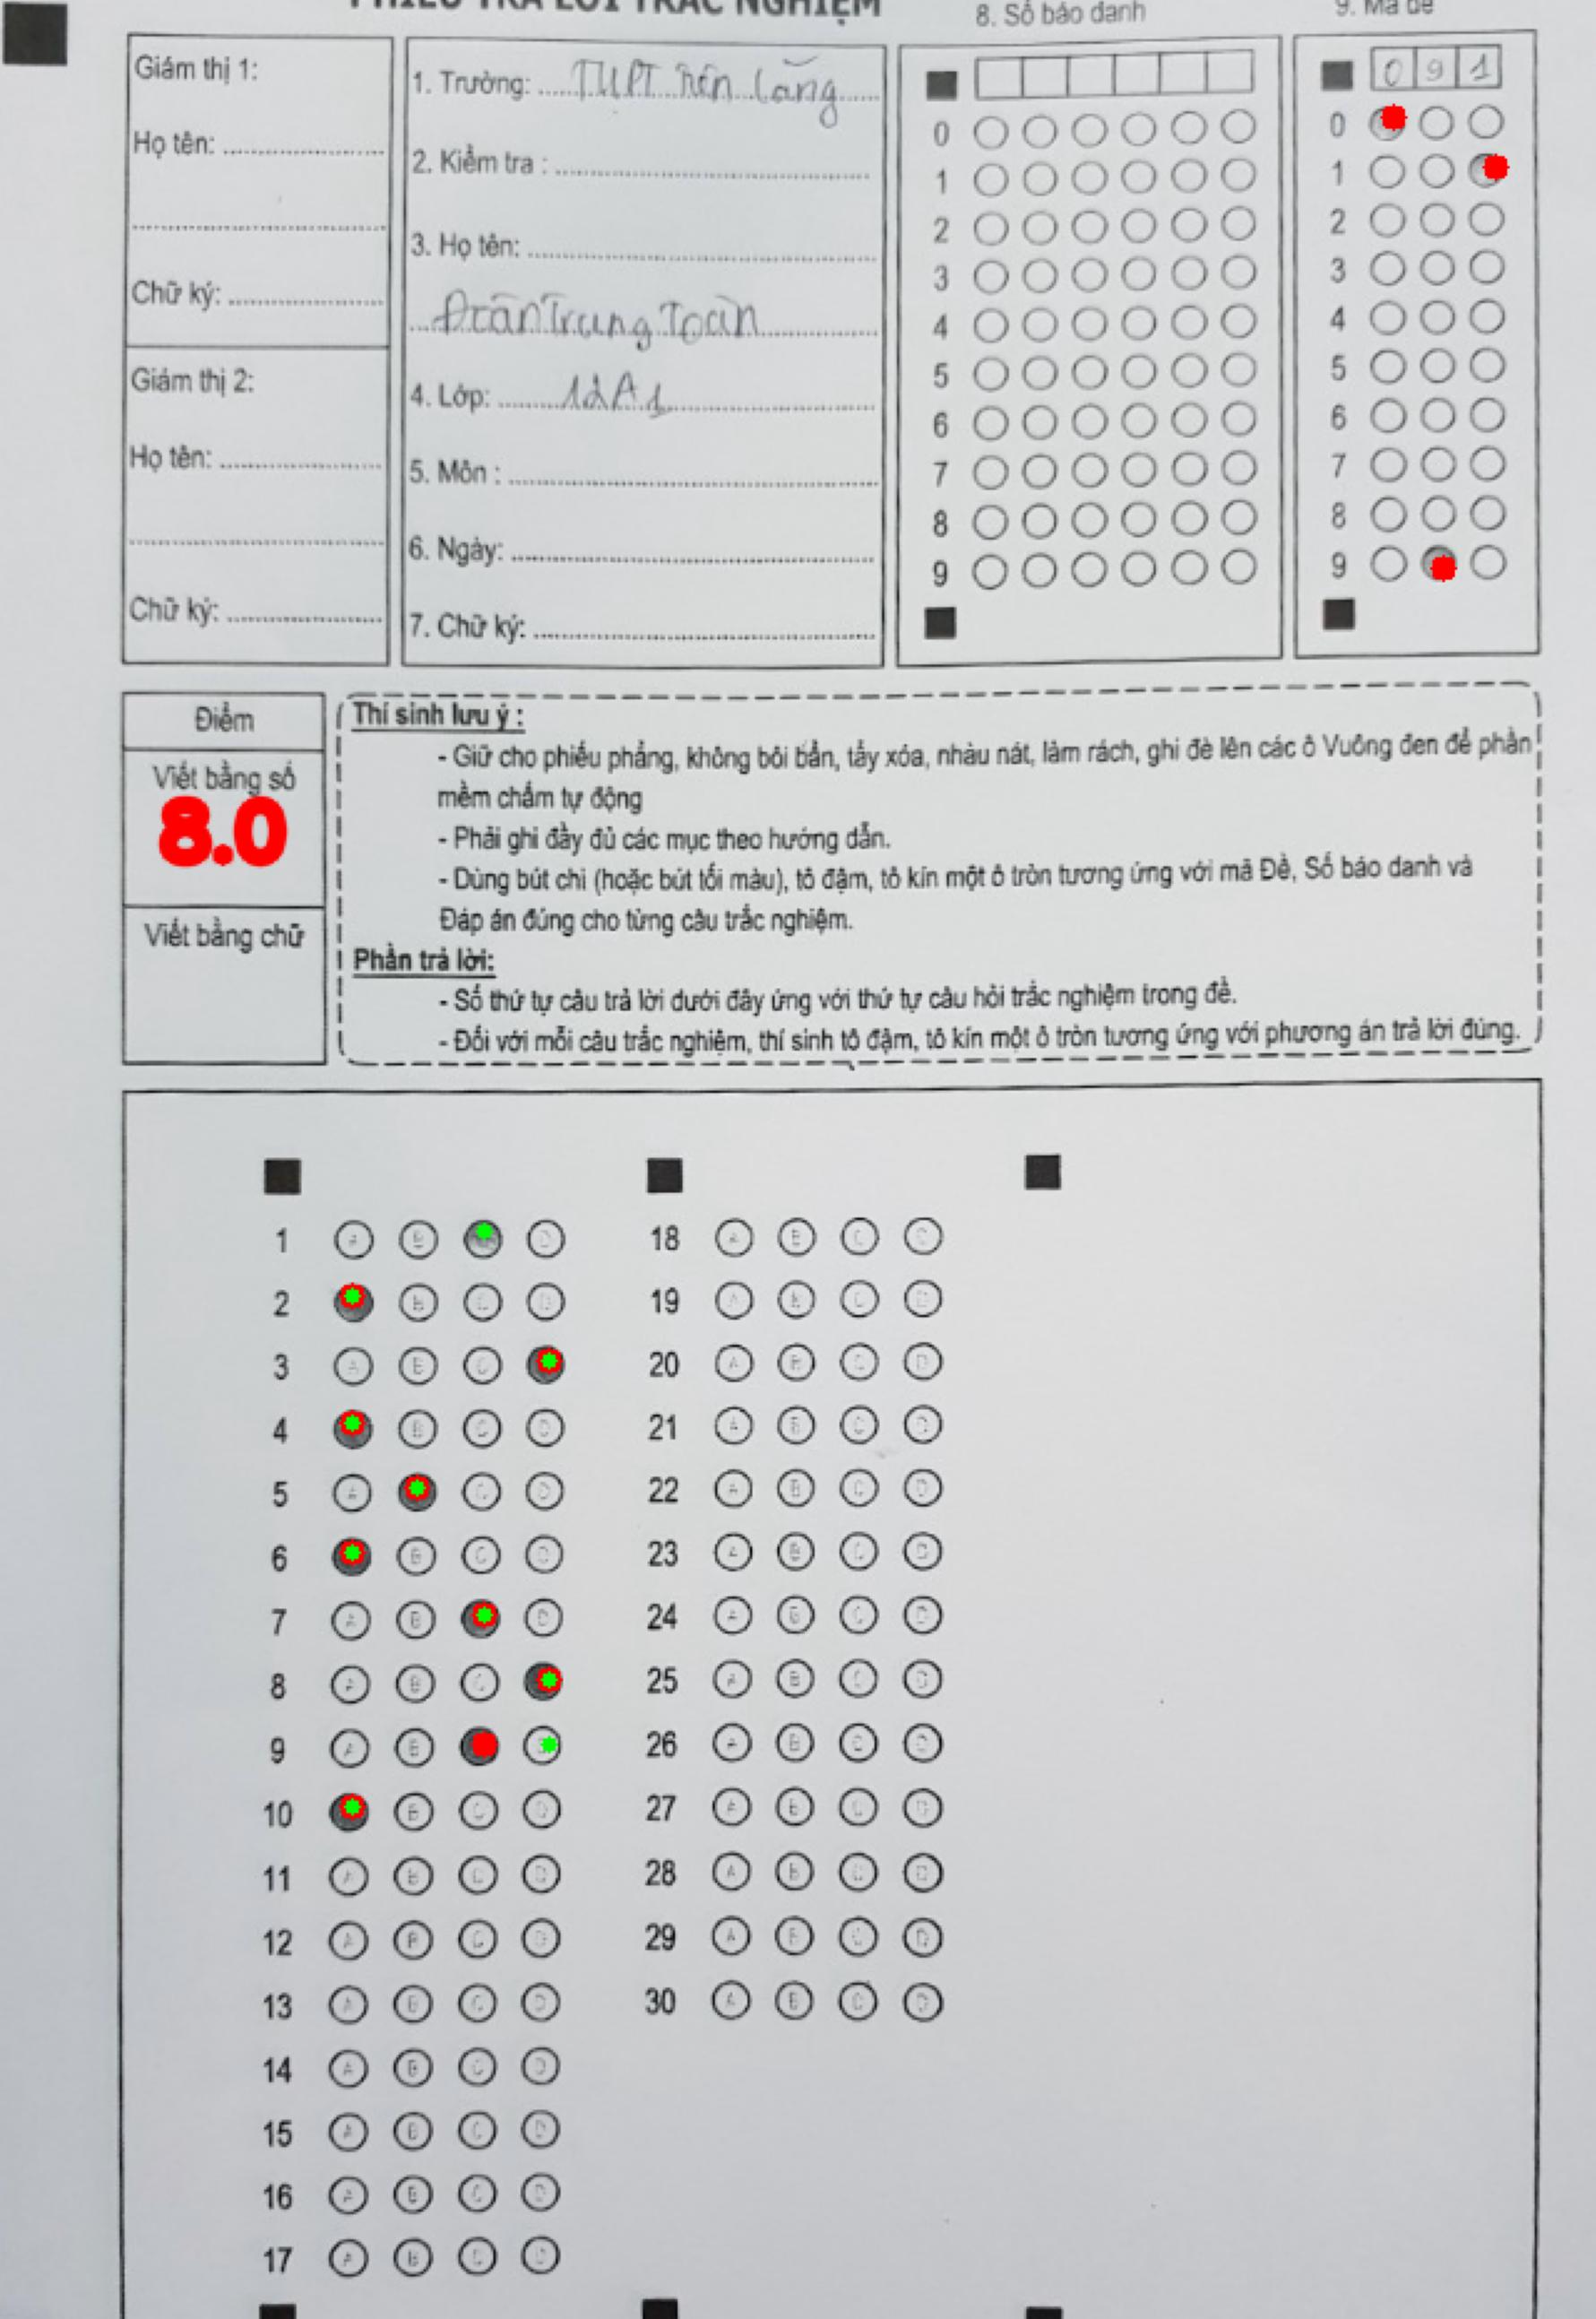 PHIẾU TRẢ LỜI TRẮC NGHIỆM
8. Số báo danh
9. Mã đề
Giám thị 1:
Họ tên:
Chữ ký:
Giám thị 2:
Họ tên:
Chữ ký:
1. Trường: THPT Tiên Lãng
2. Kiểm tra :
3. Họ tên:
Trung Toàn
4. Lớp: 12A1
5. Môn :
6. Ngày:
7. Chữ ký:
0
1
2
3
4
5
6
7
8
9
0 9 1
0
1
2
3
4
5
6
7
8
9
Điểm
Viết bằng số
8.0
Viết bằng chữ
Thí sinh lưu ý :
- Giữ cho phiếu phẳng, không bôi bẩn, tẩy xóa, nhàu nát, làm rách, ghi đè lên các ô Vuông đen để phần
mềm chấm tự động
- Phải ghi đầy đủ các mục theo hướng dẫn.
- Dùng bút chì (hoặc bút tối màu), tô đậm, tô kín một ô tròn tương ứng với mã Đề, Số báo danh và
Đáp án đúng cho từng câu trắc nghiệm.
Phần trả lời:
- Số thứ tự câu trả lời dưới đây ứng với thứ tự câu hỏi trắc nghiệm trong đề.
- Đối với mỗi câu trắc nghiệm, thí sinh tô đậm, tô kín một ô tròn tương ứng với phương án trả lời đúng.
1 A B D
2 B C D
3 A B C
4 B C D
5 A C D
6 B C D
7 A B D
8 A B C
9 A B
10 B C D
11 A B C D
12 A B C D
13 A B C D
14 A B C D
15 A B C D
16 A B C D
17 A B C D
18 A B C D
19 A B C D
20 A B C D
21 A B C D
22 A B C D
23 A B C D
24 A B C D
25 A B C D
26 A B C D
27 A B C D
28 A B C D
29 A B C D
30 A B C D